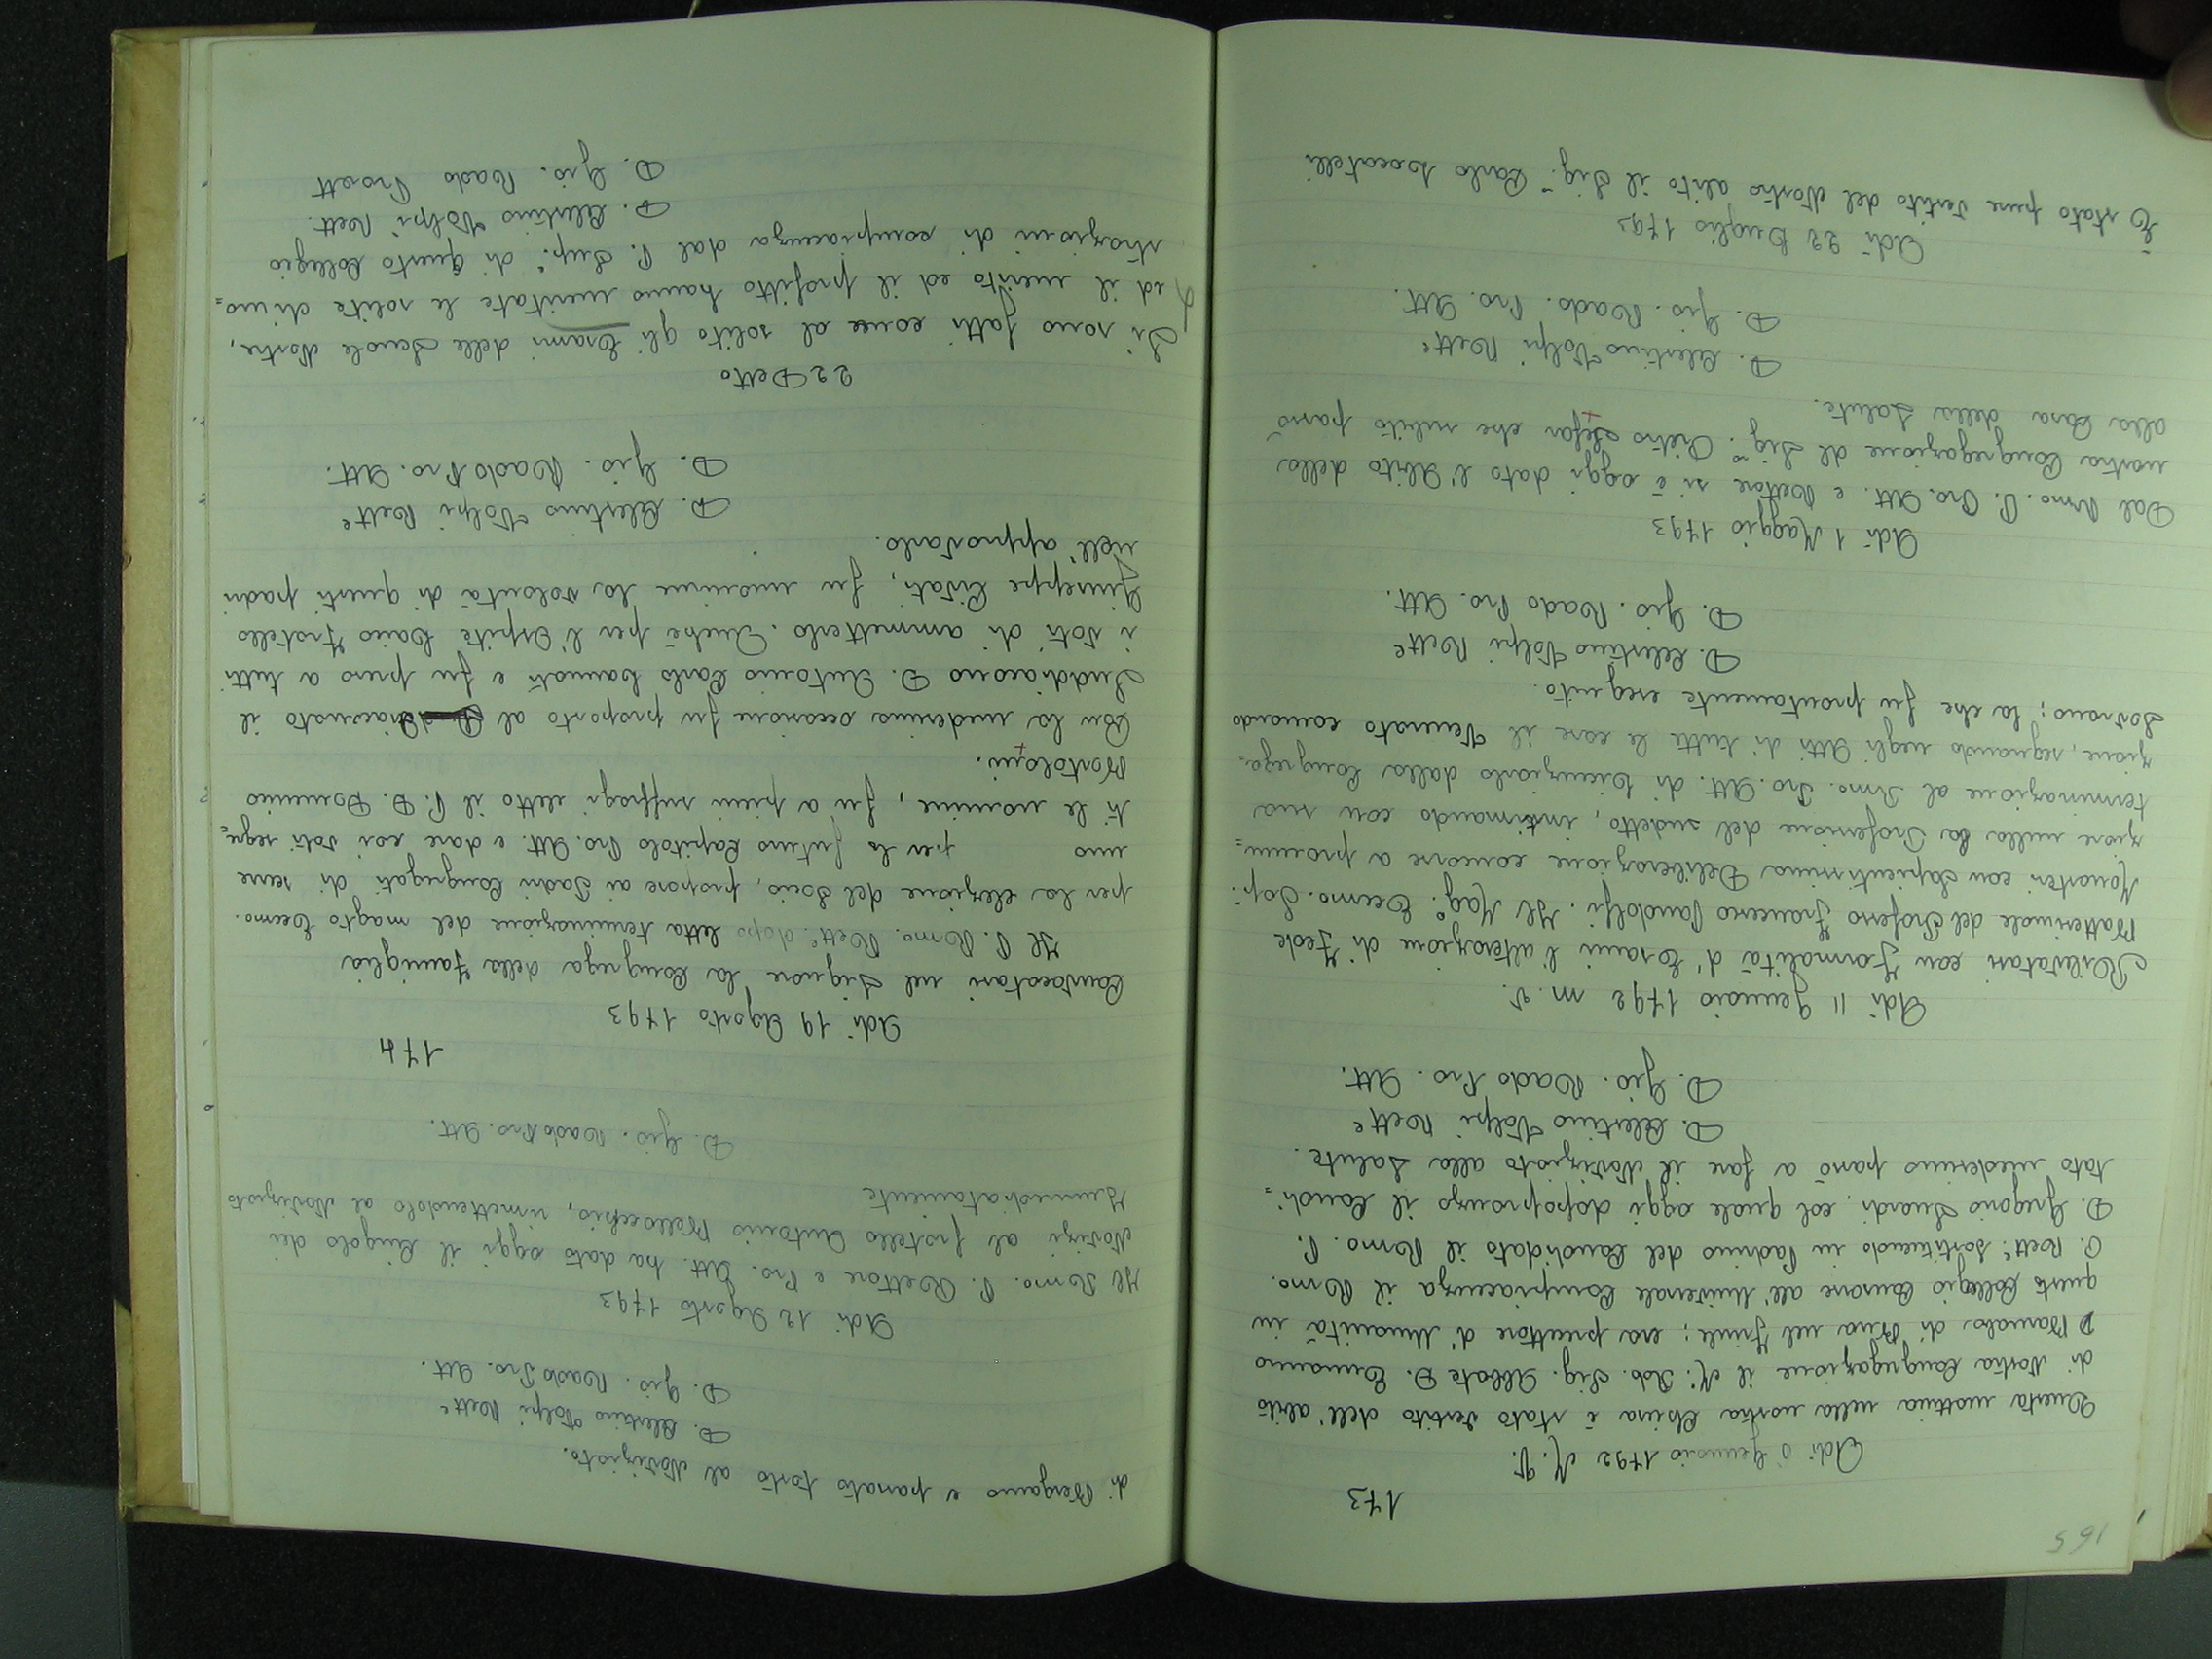 165
173
Adì 5 Gennaio 1792 M. V.
Questa mattina nella nostra Chiesa è stato vestito dell'abito
di Nostra Congregazione il N. Nob. Sig. Abbate D. Ermanno
Barnaba di Buia nel Friule; era precettore d'Umanità in
questo Collegio Censore all'Universale Compiacenza il Rmo.
P. Rett.e sostituendo in Padrino del Candidato il Rmo. P.
D. Gregorio Suardi, col quale oggi dopopranzo il Candi=
tato medesimo passò a fare il Noviziato alla Salute.
D. Celestino Volpi Rett.e
D. Gio. Rado Pro. Att.
Adì 11 Gennaio 1792 m. v.
Rilevatasi con Formalità d'Esami l'alterazione di Fede
Battesimale del Professo Francesco Pandolfi. Il Mag.o Eccmo. Sop.
Monasteri con Sapientissima Deliberazione concorse a pronun=
ziare nulla la Professione del sudetto, intimando con sua
terminazione al Rmo. Pro. Att. di Licenziarlo dalla Congrega=
zione, segnando negli Atti di tutte le case il Venerato comando
Sovrano; lo che fu prontamente eseguito.
D. Celestino Volpi Rett.e
D. Gio. Rado Pro. Att.
Adì 1 Maggio 1793
Dal Rmo. P. Pro. Att. e Rettore si è oggi dato l'Abito della
nostra Congregazione al Sig.r Pietro Stefan che subito passò
alla Casa della Salute.
D. Celestino Volpi Rett.e
D. Gio. Rado. Pro. Att.
Adì 22 Luglio 1793
È stato pure vestito del Nostro abito il Sig.r Carlo Locatelli
di Bergamo e passato tosto al Noviziato.
D. Celestino Volpi Rett.e
D. Gio. Rado Pro. Att.
Adì 12 Agosto 1793
Il Rmo. P. Rettore e Pro. Att. ha dato oggi il Cingolo dei
Novizi al fratello Antonio Bellocchio, rimettendolo al Noviziato
Immediatamente
D. Gio. Rado Pro. Att.
174
Adì 19 Agosto 1793
Convocatasi nel Signore la Congrega della Famiglia
Il P. Rmo. Rett.e dopo letta terminazione del magto Eccmo.
per la elezione del Socio, propose ai Padri Congregati di serne
uno per lo futuro Capitolo Pro. Att. e dare così voti segre=
ti le nomine, fu a pieni suffragi eletto il P. D. Domenico
Bortolomi.
Con la medesima occasione fu proposto al Diaconato il
Suddiacono D. Antonio Carlo Cannoti e fu preso a tutti
i voti di ammetterlo. Anchè per l'Ospite Laico Fratello
Giuseppe Civati, fu unanime la volontà di questi padri
nell'approvarlo.
D. Celestino Volpi Rett.e
D. Gio. Rado Pro. Att.
22 Detto
Si sono fatti come al solito gli Esami delle Scuole Nostre,
ed il merito ed il profitto hanno meritate le solite dimo=
strazioni di compiacenza dal P. Sup.e di questo Collegio
D. Celestino Volpi Rett.
D. Gio. Rado Proatt